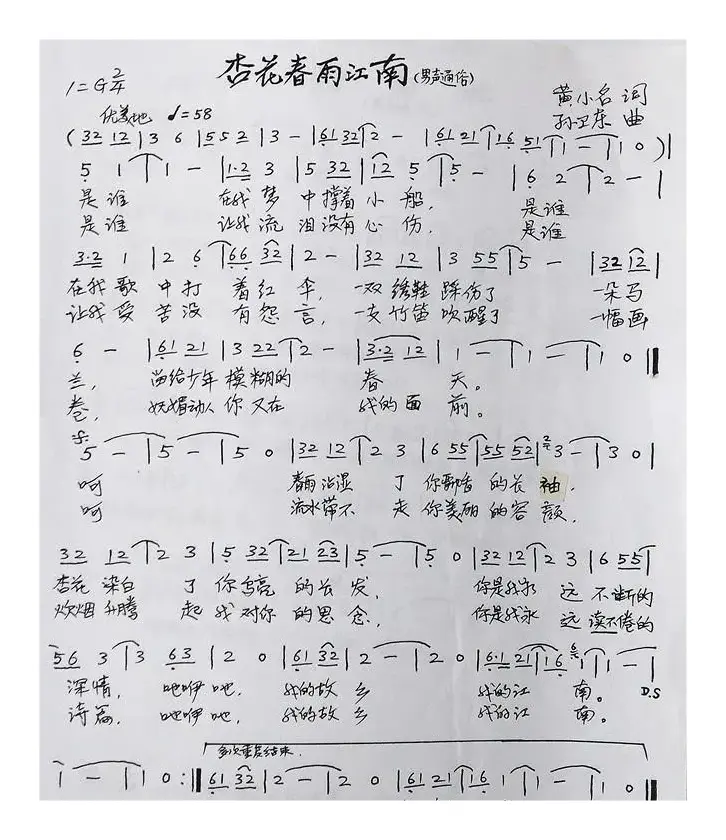 杏花春雨江南(男声通俗)
1=G 2/4
黄小名 词
优美地 ♩=58
孙卫东 曲
(32 12 | 3 6 | 55 2 | 3 - | 61 32 | 2 - | 61 21 | 16 51 | 1 - | 1 0)|
5 1 | 1 - | 1·2 3 | 5 32 | 12 5 | 5 - | 6 2 | 2 - |
是谁 在我梦 中撑着小 船, 是谁
是谁 让我流 泪没有心 伤, 是谁
3·2 1 | 2 6 | 66 32 | 2 - | 32 12 | 3 55 | 5 - | 32 12 |
在我歌 中打 着红 伞, 一双 绣鞋 踩伤了 一朵马
让我受 苦没 有怨 言, 一支竹笛 吹醒了 一幅画
6 - | 61 21 | 3 22 | 2 - | 3·2 12 | 1 - | 1 - | 1 0 ‖
兰, 留给少年 模糊的 春 天。
卷, 妩媚动人 你又在 我的面 前。
5 - | 5 - | 5 0 | 32 12 | 2 3 | 6 55 | 55 52 | 3 - | 3 0 |
呵 春雨沾湿 了 你飘香 的长 袖.
呵 流水带不 走 你美丽 的容 颜,
32 12 | 2 3 | 5 32 | 21 23 | 5 - | 5 0 | 32 12 | 2 3 | 6 55 |
杏花 染白 了 你乌亮 的长 发, 你是我永 远 不断的
炊烟 升腾 起 我对你 的思 念, 你是我永 远 读不倦的
56 3 | 3 63 | 2 0 | 61 32 | 2 - | 2 0 | 6·1 21 | 16 1 | 1 - |
深情, 吔咿吔, 我的故 乡 我的江 南。 D.S
诗篇, 吔咿吔, 我的故 乡 我的江 南。
多次重复结束.
1 - | 1 0 :‖ 61 32 | 2 - | 2 0 | 61 21 | 16 1 | 1 - | 1 - | 1 0 ‖